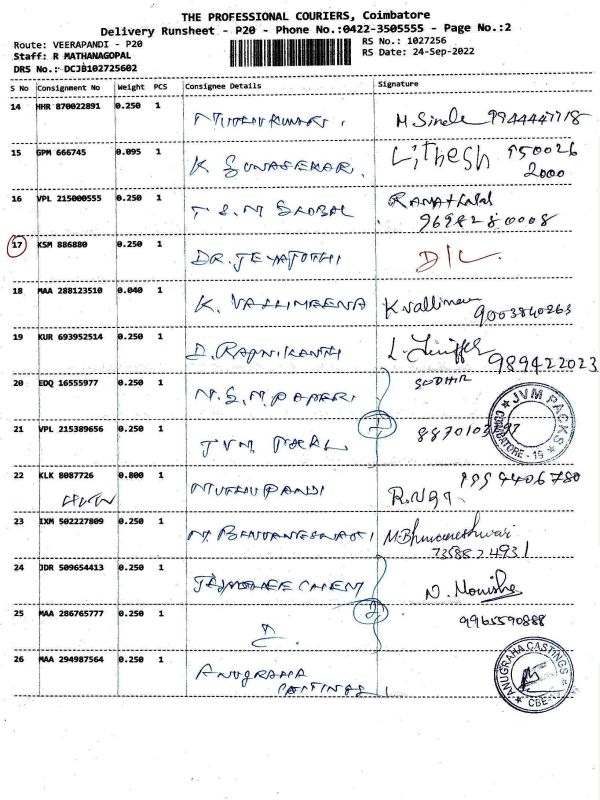 THE PROFESSIONAL COURIERS, Coimbatore
Delivery Runsheet - P20 - Phone No.:0422-3505555 - Page No.:2
Route: VEERAPANDI - P20 RS No.: 1027256
Staff: R MATHANAGOPAL RS Date: 24-Sep-2022
DRS No.: DCJB102725602
S No Consignment No Weight PCS Consignee Details Signature
14 HHR 870022891 0.250 1 9944447718
15 GPM 666745 0.095 1 K GUNASEKAR. Lithesh 950026
2000
16 VPL 215000555 0.250 1 T S M GLOBAL
9698280008
17 KSM 886880 0.250 1 DR. JEYAJOTHI D/L
18 MAA 288123510 0.040 1 K. VALLIMEENA K vallimeena
9003840263
19 KUR 693952514 0.250 1 RAJNIKANTH
989422023
20 EDQ 16555977 0.250 1 SUDHIR
21 VPL 215389656 0.250 1 JVM 2
JVM PACKS COIMBATORE - 19
22 KLK 8087726 0.800 1 MUTHU PANDI 9994406780
23 IXM 502227809 0.250 1 M. Bhuvaneshwari
7358824931
24 JDR 509654413 0.250 1 N. Monisha
25 MAA 286765777 0.250 1 2 9965590888
26 MAA 294987564 0.250 1 ANUGRAHA
CASTINGS
ANUGRAHA CASTINGS CBE